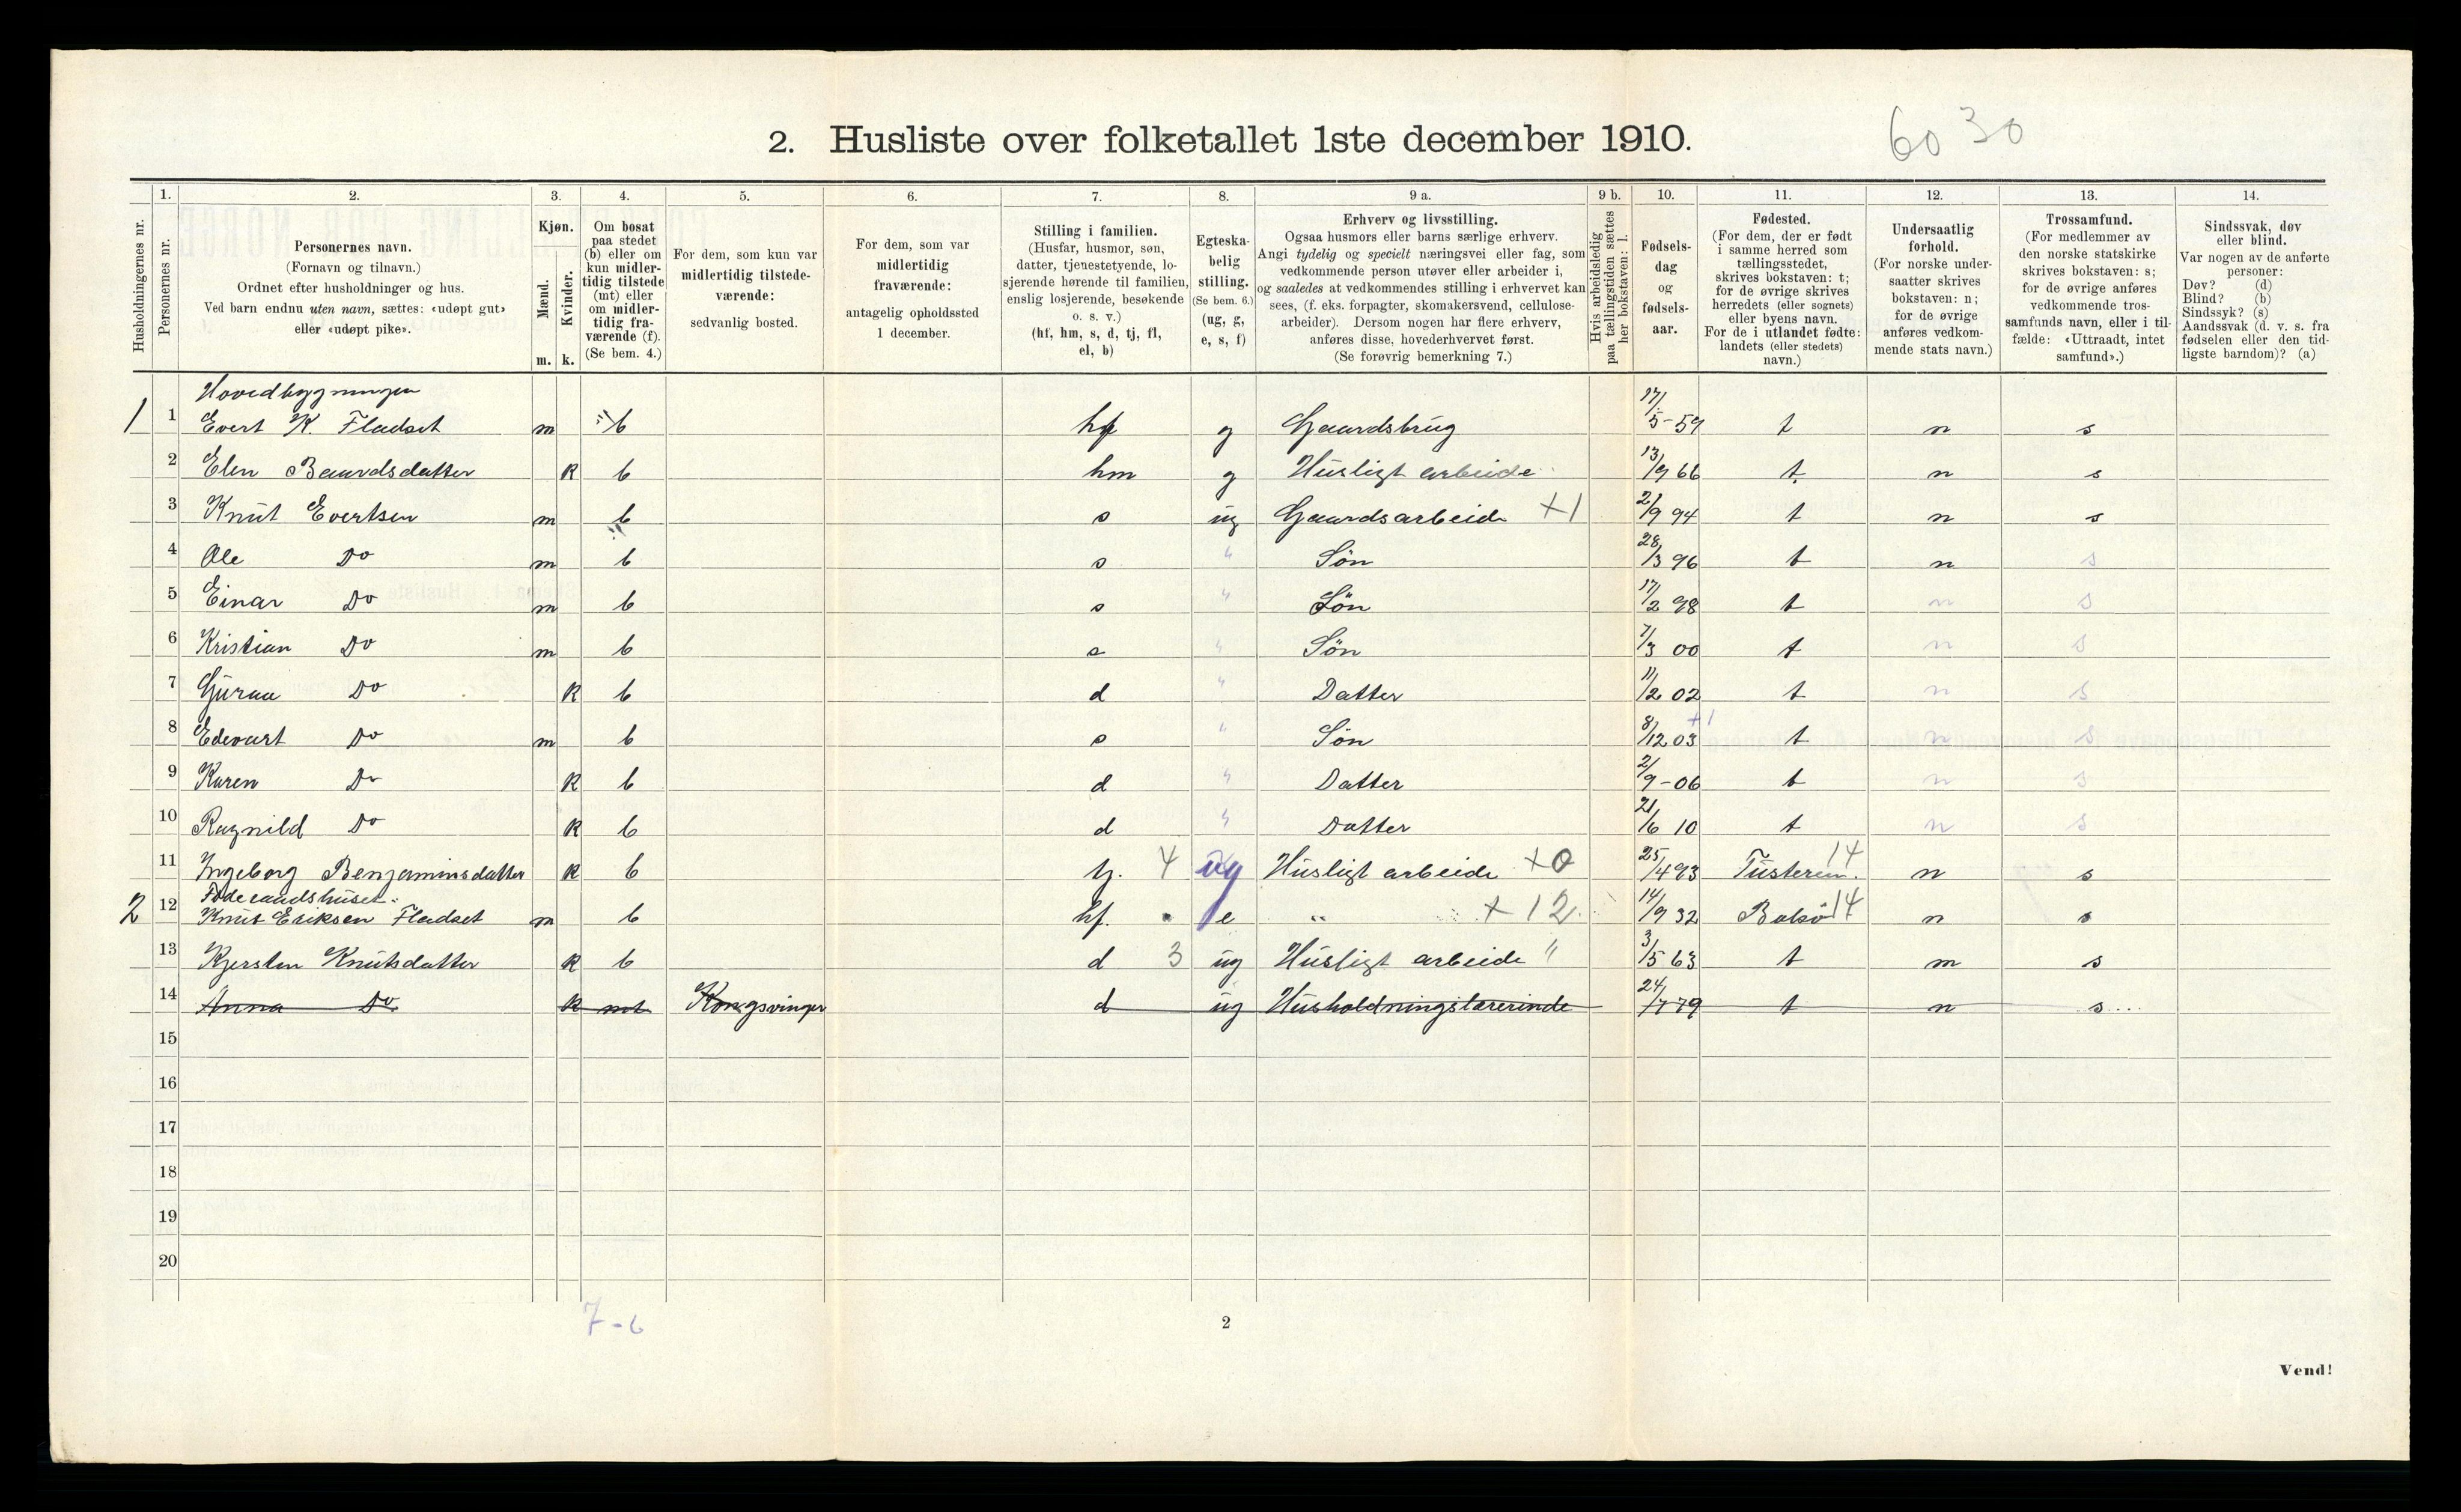 2. Husliste over folketallet 1ste december 1910.
60 30
Husholdningernes nr.
1. Personernes nr.
2. Personernes navn. (Fornavn og tilnavn.) Ordnet efter husholdninger og hus. Ved barn endnu uten navn, sættes: «udøpt gut» eller «udøpt pike».
3. Kjøn. Mænd. m. Kvinder. k.
4. Om bosat paa stedet (b) eller om kun midlertidig tilstede (mt) eller om midlertidig fraværende (f). (Se bem. 4.)
5. For dem, som kun var midlertidig tilstedeværende: sedvanlig bosted.
6. For dem, som var midlertidig fraværende: antagelig opholdssted 1 december.
7. Stilling i familien. (Husfar, husmor, søn, datter, tjenestetyende, losjerende hørende til familien, enslig losjerende, besøkende o. s. v.) (hf, hm, s, d, tj, fl, el, b)
8. Egteskabelig stilling. (Se bem. 6.) (ug, g, e, s, f)
9 a. Erhverv og livsstilling. Ogsaa husmors eller barns særlige erhverv. Angi tydelig og specielt næringsvei eller fag, som vedkommende person utøver eller arbeider i, og saaledes at vedkommendes stilling i erhvervet kan sees, (f. eks. forpagter, skomakersvend, cellulosearbeider). Dersom nogen har flere erhverv, anføres disse, hovederhvervet først. (Se forøvrig bemerkning 7.)
9 b. Hvis arbeidsledig paa tællingstiden sættes her bokstaven: l.
10. Fødselsdag og fødselsaar.
11. Fødested. (For dem, der er født i samme herred som tællingsstedet, skrives bokstaven: t; for de øvrige skrives herredets (eller sognets) eller byens navn. For de i utlandet fødte: landets (eller stedets) navn.)
12. Undersaatlig forhold. (For norske undersaatter skrives bokstaven: n; for de øvrige anføres vedkommende stats navn.)
13. Trossamfund. (For medlemmer av den norske statskirke skrives bokstaven: s; for de øvrige anføres vedkommende trossamfunds navn, eller i tilfælde: «Uttraadt, intet samfund».)
14. Sindssvak, døv eller blind. Var nogen av de anførte personer: Døv? (d) Blind? (b) Sindssyk? (s) Aandssvak (d. v. s. fra fødselen eller den tidligste barndom)? (a)
Hovedbygningen
1 1 Evert K. Fladset m b hf g Gaardsbrug 17/5-59 t n s
2 Elen Baardsdatter k b hm g Husligt arbeide 13/9 66 t. n s
3 Knut Evertsen m b s ug Gaardsarbeide +1 2/9 94 t n s
4 Ole Do m b s " Søn 28/3 96 t n s
5 Einar Do m b s " Søn 17/2 98 t n s
6 Kristian Do m b s " Søn 7/3 00 t n s
7 Guraa Do k b d " Datter 11/2 02 t n s
8 Edevart Do m b s " Søn 8/12 03 +1 t n s
9 Karen Do k b d " Datter 2/9-06 t n s
10 Ragnild Do k b d " Datter 21/6 10 t n s
11 Ingeborg Benjaminsdatter k b tj. 4 ug Husligt arbeide +0 25/4 93 Tusteren. 14 n s
Føderaadshuset
2 12 Knut Eriksen Fladset m b hf. e " +12 14/9 32 Bolsø 14 n s
13 Kjersten Knutsdatter k b d 3 ug Husligt arbeide " 3/5 63 t n s
14 Anna Do k mt Kongsvinger d ug Husholdningslærerinde 24/7 79 t n s
15
16
17
18
19
20
7-6
2
Vend!